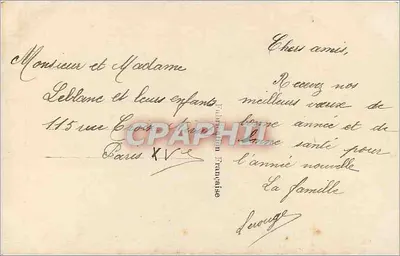 Monsieur et Madame
Leblanc et leurs enfants
115 rue
Paris XVe
Fabrication Française
Chers amis,
Recevez nos
meilleurs vœux de
bonne année et de
bonne santé pour
l'année nouvelle
La famille
Lerouge
CPAPHIL